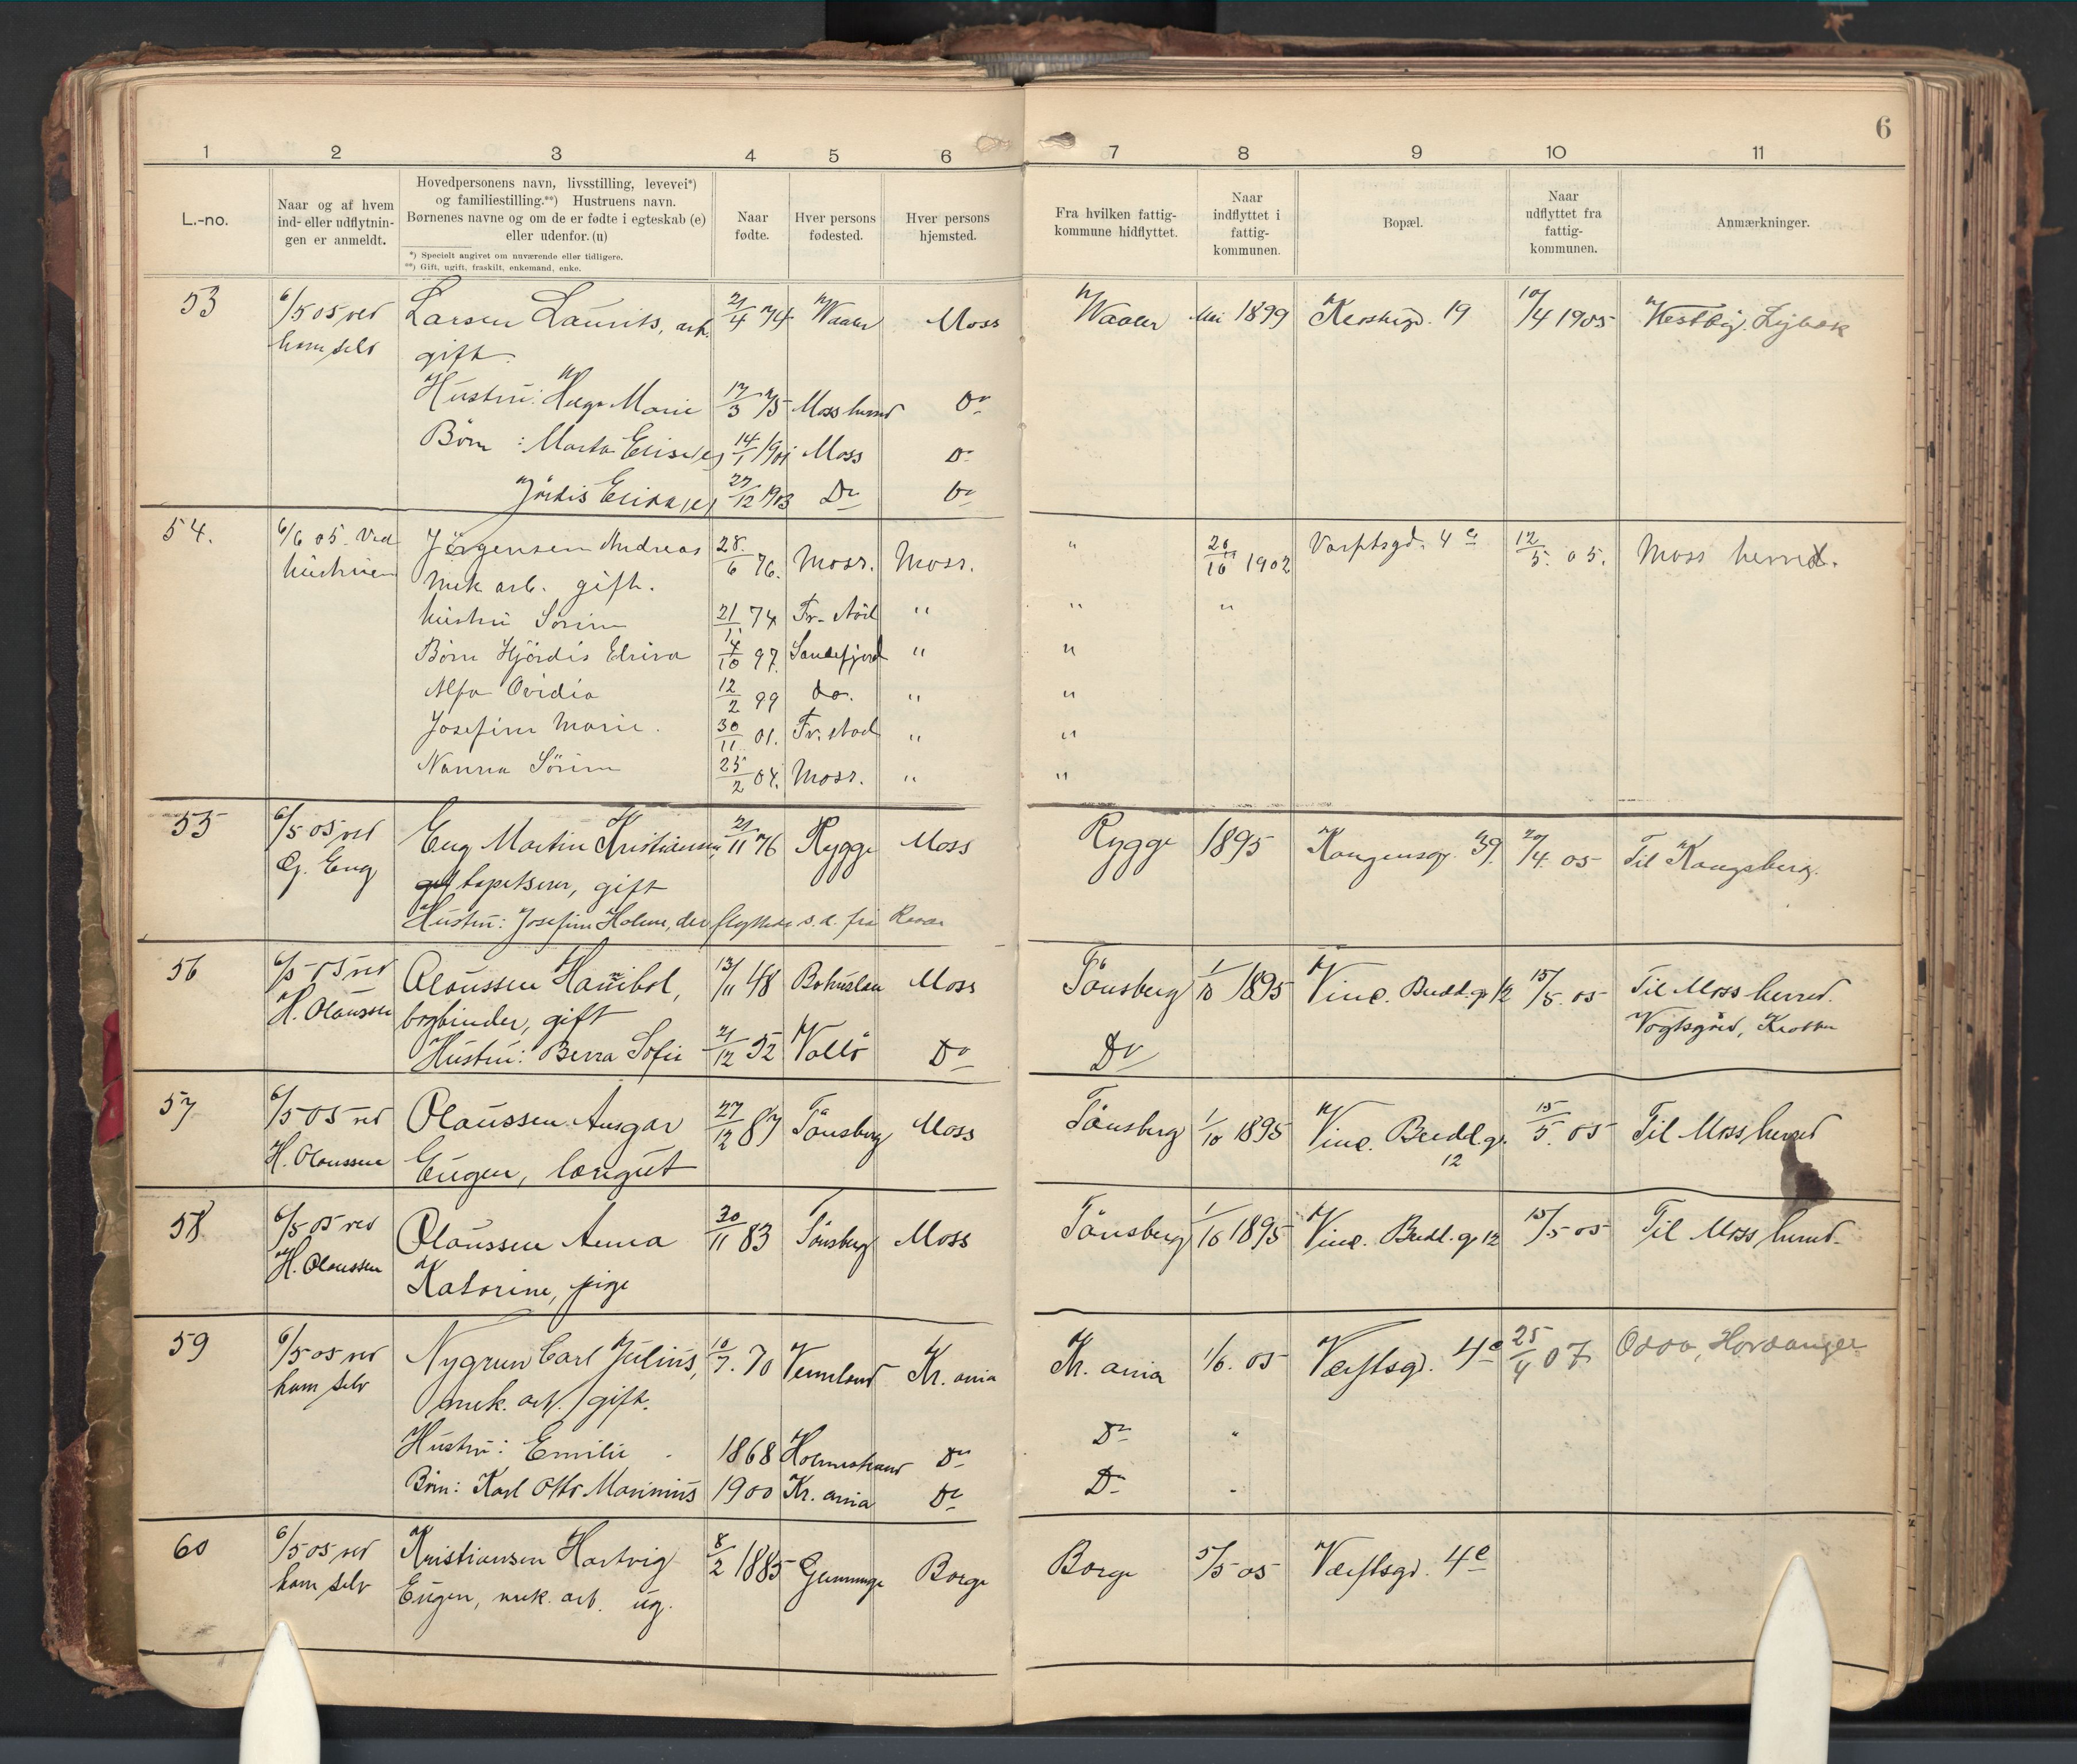 6
1 2 3 4 5 6 7 8 9 10 11
L.-no.
Naar og af hvem
ind- eller udflytnin-
gen er anmeldt.
Hovedpersonens navn, livsstilling, levevei*)
og familiestilling.**) Hustruens navn.
Børnenes navne og om de er fødte i egteskab (e)
eller udenfor. (u)
*) Specielt angivet om nuværende eller tidligere.
**) Gift, ugift, fraskilt, enkemand, enke.
Naar
fødte.
Hver persons
fødested.
Hver persons
hjemsted.
Fra hvilken fattig-
kommune hidflyttet.
Naar
indflyttet i
fattig-
kommunen.
Bopæl.
Naar
udflyttet fra
fattig-
kommunen.
Anmærkninger.
53 6/5 05 ved Larsen Laurits, arb. 21/4 74 Waaler Moss Waaler Mai 1899 19 10/4 1905 Vestby
ham selv gift.
Hustru: Marie 17/3 75 Moss herred Do
Børn: Marta (e) 14/1 1901 Moss Do
Jördis (e) 27/12 1903 Do Do
54. 6/6 05. Ved Jörgensen Andreas 28/6 76. Moss. Moss. " 20/10 1902 Værftsgd. 4 e 12/5. 05. Moss herred.
hustruen mek arb. gift.
hustru Sörine 21/11 74 Fr-stad " " "
Børn Hjördis 14/10 97. Sandefjord " "
Alfa Ovidia 12/2 99 do. " "
Josefine Marie. 30/11 01. Fr. stad " "
Nanna Sörine 25/2 04. Moss. " "
55 6/5 05 ved Eng Martin Kristiansen, 21/11 76 Rygge Moss Rygge 1895 Kongensg. 39. 20/4. 05 Til Kongsberg.
Eng tapetserer, gift
Hustru: Josefine Holm, der flyttede s. d. fra
56 6/5 05 ved Olaussen Hanibal, 13/11 48 Bohuslen Moss Tönsberg 1/10 1895 Vinc. Budd. g 12 15/5. 05 Til Moss herred.
H. Olaussen bogbinder, gift Vogtsgård, Krossen
Hustru: Berra Sofie 21/12 52 Vallö Do Do
57 6/5 05 ved Olaussen Ansgar 27/12 87 Tönsberg Moss Tönsberg 1/10 1895 Vinc. Budd. g. 15/5. 05 Til Moss herred
H. Olaussen Eugen, løngut 12
58 6/5 05 ved Olaussen Anna 30/11 83 Tönsberg Moss Tönsberg 1/10 1895 Vinc. Budd. g 12 15/5 05 Til Moss herred.
H. Olaussen Katorine, pige
59 6/5 05 ved Nygren Carl Julius, 10/7. 70 Vermland Kr. ania Kr. ania 1/6. 05 Værftsgd. 4 e 25/4 07 Odda, Hardanger
ham selv mek. arb. gift.
Hustru: Emilie 1868 Holmestrand Do Do "
Børn: Karl Otto Marinius 1900 Kr. ania Do Do "
60 6/5 05 ved Kristiansen Hartvig 8/2 1885 Glemminge Borge Borge 5/5 05 Værftsgd. 4 e
ham selv Eugen, mek. arb. ug.